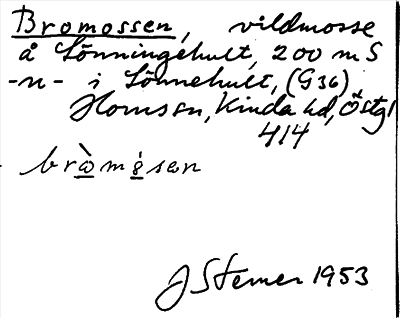 Bromossen, vildmosse
å Lönningehult, 200 m S
-n- i Lönnehult, (G36)
Hornsn, Kinda hd, Östgl
414
bròmósen
J Sterner 1953